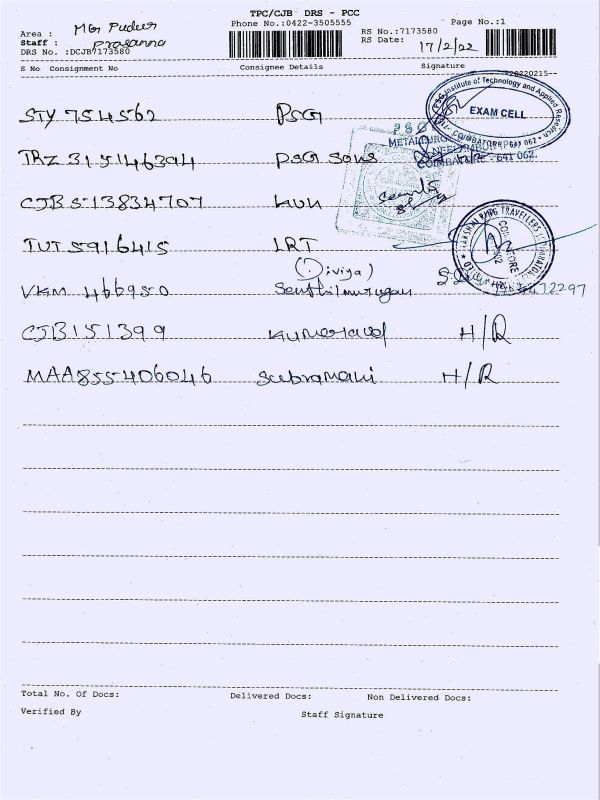 TPC/CJB DRS - PCC
Phone No.:0422-3505555
Page No.:1
Area : MG Pudur
Staff : Prasanna
DRS No. :DCJB7173580
RS No.:7173580
RS Date: 17/2/22
S No Consignment No Consignee Details Signature
20220215--
STY 754562 PSG
PSG Institute of Technology and Applied Research
EXAM CELL
COIMBATORE 641 062
TRZ 315146394 PSG Sons
PSG
COIMBATORE - 641 062.
CJB 513834707 KUN
TUT 5916415 LRT
(Diviya)
VKM 466950 Senthilmurugan
72297
CJB151399 Kumaravel H/R
MAA855406046 Subramani H/R
Total No. Of Docs: Delivered Docs: Non Delivered Docs:
Verified By Staff Signature